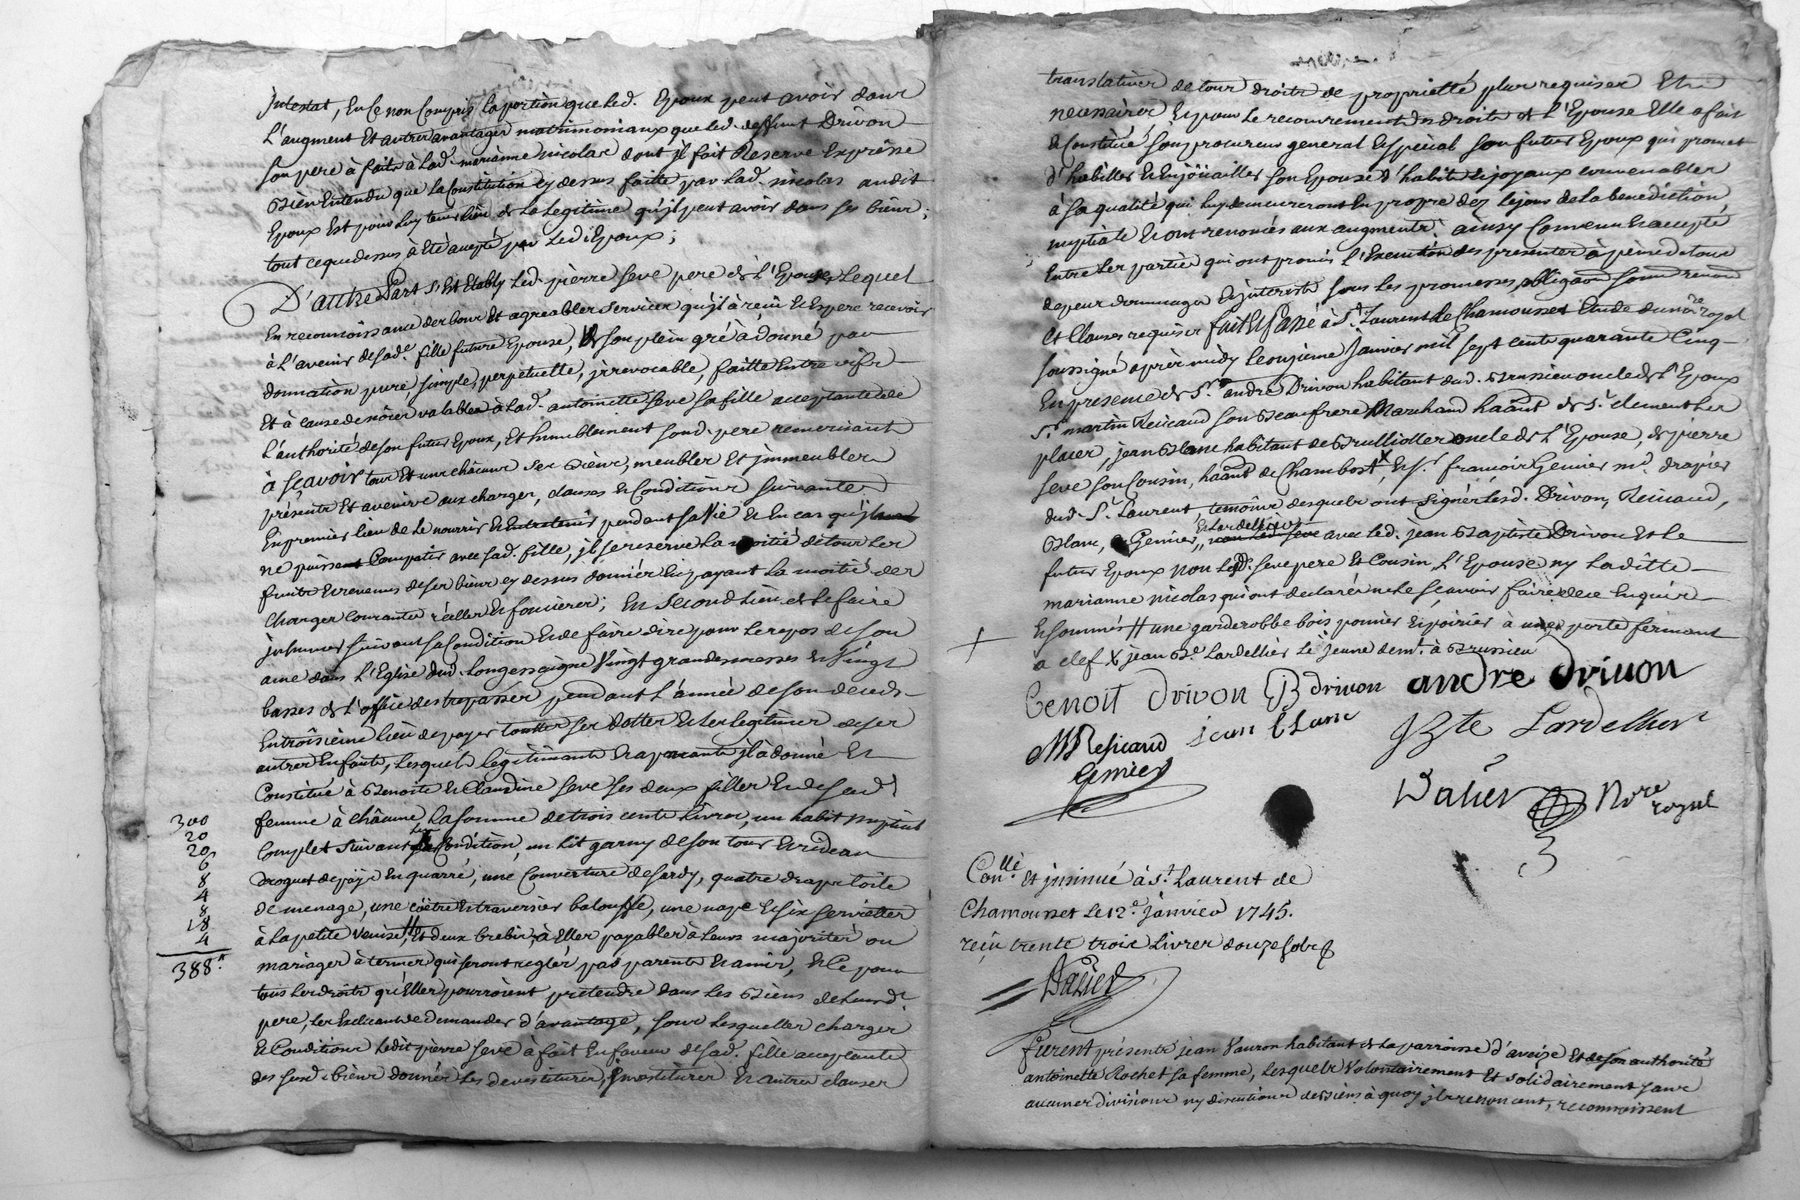 jntestat, En Ce non Compris la portion que led. Epoux peut avoir dans
L'augment Et autres avantages matrimoniaux que led. deffunt Drivon
son pere à faits à Lad. marianne nicolas dont jl fait Reserve Expresse
Bien Entendu que la Constitution cy dessus faitte par Lad. nicolas audit
Epoux Est pour luy tenir lieu de La Legitime qu'jl peut avoir dans ses biens;
tout ce que dessus à Eté accepté par Led. Epoux;
D'autre Part s'Est Etably Led. pierre seve pere de L'Epouse, Lequel
En reconnoissance des bons Et agreables services qu'jl à reçu Et Espere recevoir
à L'avenir de sade. fille future Epouse, de son plein gré à donné par
donnation pure, simple, perpetuelle, jrrevocable, faitte Entre vifs
Et à cause de nôces valable à Lad. antoinette seve sa fille acceptante de
L'authorité de son futur Epoux, Et humblement sond. pere remerciant
à sçavoir tous Et uns châcuns ses Biens, meubles Et jmmeubles
présents Et avenirs aux charges, clauses Et Conditions suivantes
En premier lieu de le nourrir Et Entretenir pendant sa Vie Et En cas qu'jls
ne puissent Compatir avec sad. fille, jl se reserve La moitié de tous les
fruits Et revenus de ses biens cy dessus donnés En payant La moitié des
charges courantes réelles Et foncieres; En second Lieu de le faire
jnhumer suivant sa Condition Et de faire dire pour le repos de son
ame dans L'Eglise dud. Longessaigne Vingt grandes messes Et Vingt
basses Et L'office des trepassés pendant L'année de son deceds
En troisieme lieu de payer toutes ses dottes Et Les legitimes de ses
autres Enfants, Lesquels legitimants Et apanants jl a donné Et
Constitué à Benoite Et Claudine seve ses deux filles Et de sad.
femme à châcune La somme de trois cents Livres, un habit nuptial
300
Complet suivant sa Condition, un Lit garny de son tour Et rideau
20
droguet de païs En quarré, une Couverture de sardy, quatre draps toile
20
6
de menage, une coëtre Et traversier balouffe, une nape Et six serviettes
8
4
8
à La petite Venise, // Et deux brebis, à Elles payables à Leurs majorités ou
18
4
mariages à termes qui seront reglés par parents Et amis, Et Ce pour
388.
tous Les droits qu'Elles pourroient pretendre dans Les Biens de Leurd.
pere, Les Excluant de demander d'avantage, sous Lesquelles charges
Et Conditions Ledit pierre seve à fait En faveur de sad. fille acceptante
des susd. biens donnés Les devestitures, jnvestitures Et autres clauses
translatives de tous droits de proprietté plus requises Et
necessaires Et pour Le recouvrement des droits de L'Epouse Elle a fait
Et Constitué son procureur general Et special son futur Epoux qui promet
d'habiller Et Enjoüailler son Epouse d'habits Et joyaux convenables
à sa qualité qui luy demeureront En propre dez le jour de la benediction
nuptiale Et ont renoncés aux augments. ainsy Convenu Et accepté
Entre Les parties qui ont promis L'Execution des presentes à peine de tous
depens dommages Et jnterests sous Les promesses, obligaõn soumõns renõns
Et Clauses requises fait Et Passé à St. Laurent de Chamousset Etude du nore royal
soussigné après midy Le onzieme Janvier mil sept cents quarante Cinq
En presence de Sr. andré Drivon habitant dud. Brussieu oncle de L'Epoux
Sr. martin Resicaud son Beaufrere Marchand haãnt de St. clement Les
places, jean Blanc habitant de Brullioles oncle de L'Epouse, de pierre
seve son Cousin, haãnt de Chambost, X Et Sr. françois Genier md. drapier
dud. St. Laurent, temoins desquels ont signés Lesd. Drivon, Resicaud,
Blanc, Genier, Et Lardellier avec led. jean Baptiste Drivon Et Le
futur Epoux non Lesd. seve pere Et Cousin, L'Epouse ny Laditte
marianne nicolas qui ont declarés ne le sçavoir faire de ce Enquis
Et sommés // une garderobbe bois ponnier Et poirier à une porte fermant
a clef X jean Bte Lardellier Le jeune demt. à Brussieu
Benoit Drivon JB drivon andre drivon
MResicaud jean blanc JBte Lardellier
Genier
Valier Nore
royal
Conllé. Et jnsinué à St. Laurent de
Chamousset Le 12e. janvier 1745.
reçu trente trois Livres douze sols
Valier
furent présents jean Vauron habitant de La parroisse d'aveize Et de son authorité
antoinette Rochet sa femme, Lesquels Volontairement Et solidairement sans
aucunes divisions ny discutions de Biens à quoy jls renoncent, reconnoissent